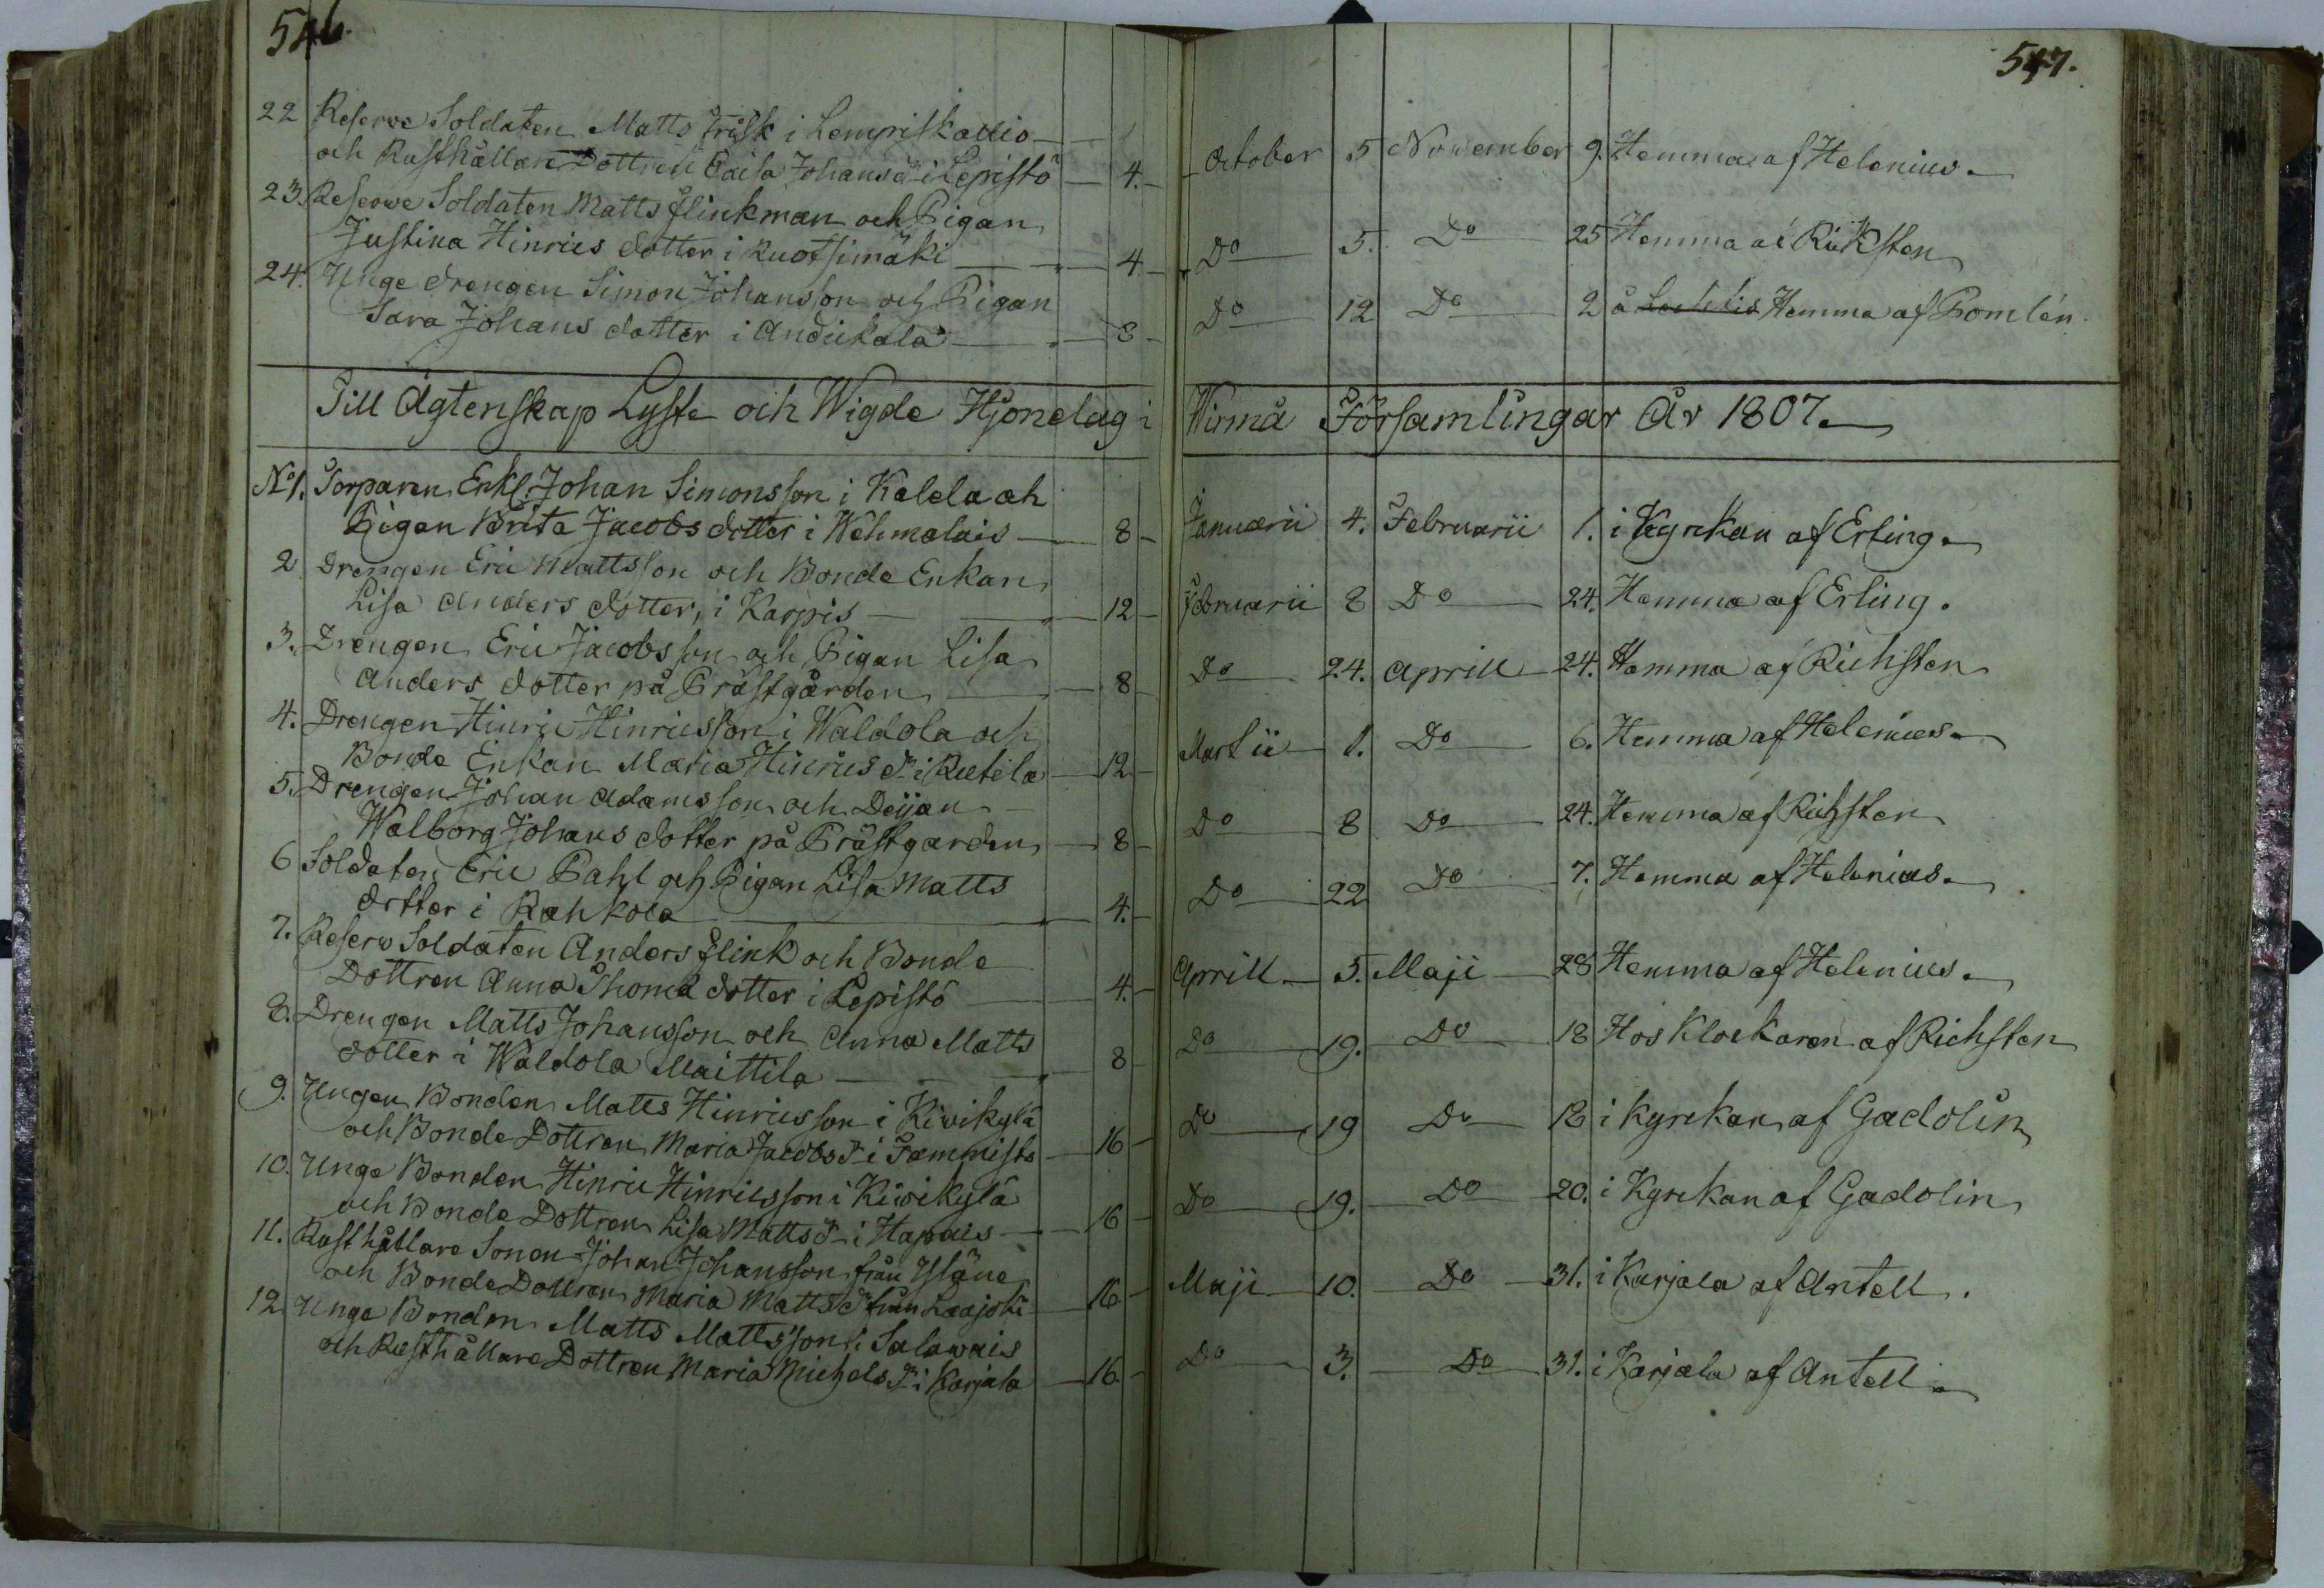 546.
22 Reserve Soldaten Matts Frisk i Lempriskallio
och Rusthållare Dottren Caisa Johans dr i Lepistö 4.
23. Reserve Soldaten Matts Flinkman och Pigan
Justina Hinrics dotter i Ruotsimäki 4.
24. Unge drengen Simon Johansson och Pigan
Sara Johans dotter i Andickala 8
Till Ägtenskap Lyste och Wigde Hjonelag i
No 1. Torparen Enkl. Johan Simonsson i Kalela och
Pigan Brita Jacobs dotter i Wehmalais 8
2 Drengen Eric Mattsson och Bonde Enkan
Lisa Anders dotter, i Karpis 12
3. Drengen Eric Jacobsson och Pigan Lisa
Anders dotter på Prästgården 8
4. Drengen Hinric Hinricsson i Waldola och
Bonde Enkan Maria Hinrics dr i Rutila 12
5. Drengen Johan Adamsson och Deijan
Walborg Johans dotter på Prästgården 8
6 Soldaten Eric Pahl och Pigan Lisa Matts
dotter i Rahkola 4.
7. Reserv Soldaten Anders Flink och Bonde
Dottren Anna Thoma dotter i Lepistö 4.
8. Drengen Matts Johansson och Anna Matts
dotter i Waldola Maittila 8
9. Ungen Bonden Matts Hinricsson i Kivikylä
och Bonde Dottren Maria Jacobs dr i Tammisto 16
10. Unge Bonden Hinric Hinricsson i Kiwikylä
och Bonde Dottren Lisa Matts dr i Hapais 16
11. Rusthållare Sonen Johan Johansson från Yläne
och Bonde Dottren Maria Matts dr från Laajoki 16
12 Unge Bonden Matts Mattsson i Salawais
och Rusthållare Dottren Maria Michels dr i Karjala 16
547.
October 5 November 9. Hemma af Helenius
Do 5. Do 25 Hemma af Richsten
Do 12 Do 2 å Hemma af Pomlén
Wirmå Församlingar År 1807.
Januarii 4. Februarii 1. i Kyrkan af Erling.
Februarii 8 Do 24. Hemma af Erling.
Do 24. Aprill 24. Hemma af Richsten
Martii 1. Do 6. Hemma af Helenius
Do 8 Do 24. Hemma af Richsten
Do 22 Do 7. Hemma af Helenius
Aprill 5. Maji 28 Hemma af Helenius
Do 19. Do 18 Hos Klockaren af Richsten
Do 19 Do 18 i Kyrkan af Gadolin
Do 19. Do 20. i Kyrkan af Gadolin
Maji 10. Do 31. i Karjala af Antell.
Do 3. Do 31. i Karjala af Antell